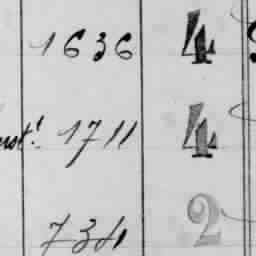 1636 4
1711 4
734 2